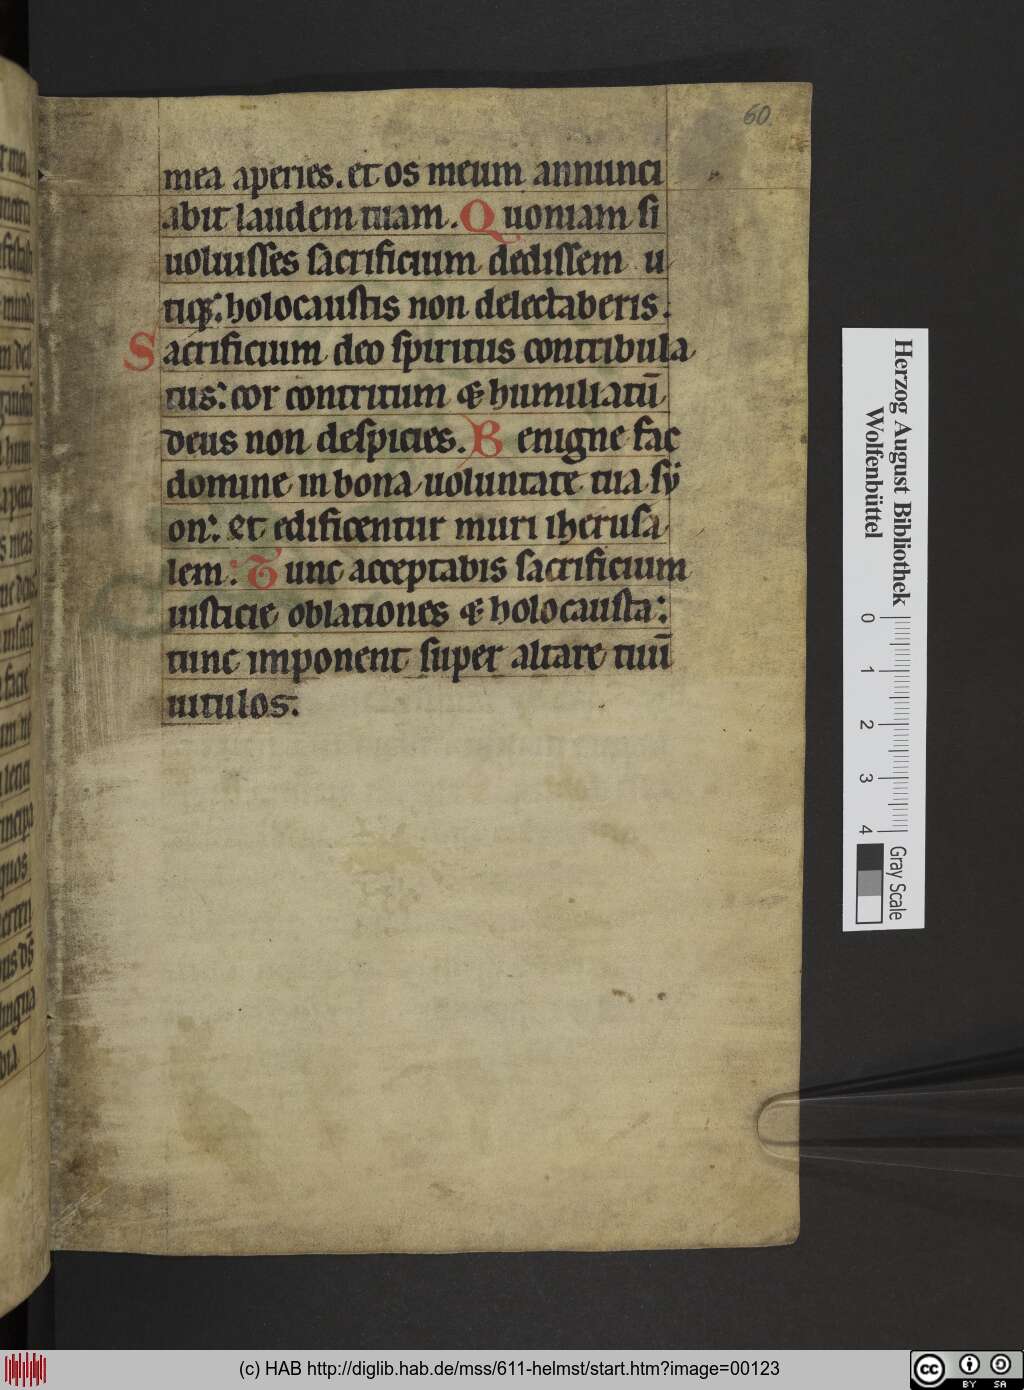 60.
mea aperies. et os meum annunci
abit laudem tuam. Quoniam si
uoluisses sacrificium dedissem u
tiqꝫ: holocaustis non delectaberis.
Sacrificium deo spiritus contribula
tus: cor contritum & humiliatū
deus non despicies. Benigne fac
domine in bona uoluntate tua sẏ
on: et edificentur muri iherusa
lem: Tunc acceptabis sacrificium
iusticie oblationes & holocausta:
tunc imponent super altare tuū
uitulos:
Herzog August Bibliothek
Wolfenbüttel
0 1 2 3 4
Gray Scale
(c) HAB http://diglib.hab.de/mss/611-helmst/start.htm?image=00123
cc BY SA